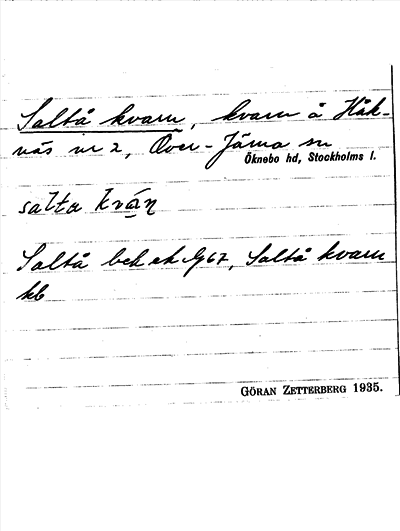 Saltå kvarn, kvarn å Håk-
näs nr 2, Över-Järna sn
Öknebo hd, Stockholms l.
salta kván
Saltå bebeh G 67, Saltå kvarn
kb
GÖRAN ZETTERBERG 1935.